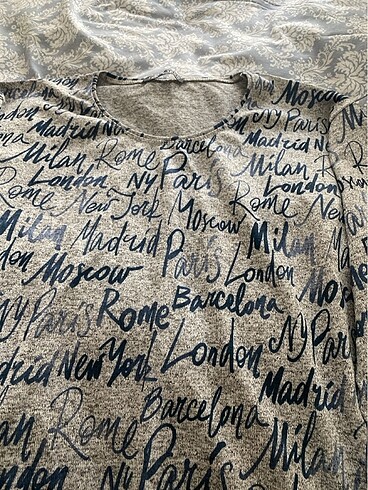 Moscow
NY Paris
Barcelona
Madrid
Madrid Ne
Milan
Milan Rome
London
London NY Paris
Rome New York Moscow Rome
Milan Madrid Paris Milan
Moscow London
NY Paris Rome Barcelona NY Paris
Madrid New York London
Barcelona Madrid
Rome London
NY Milan
Paris